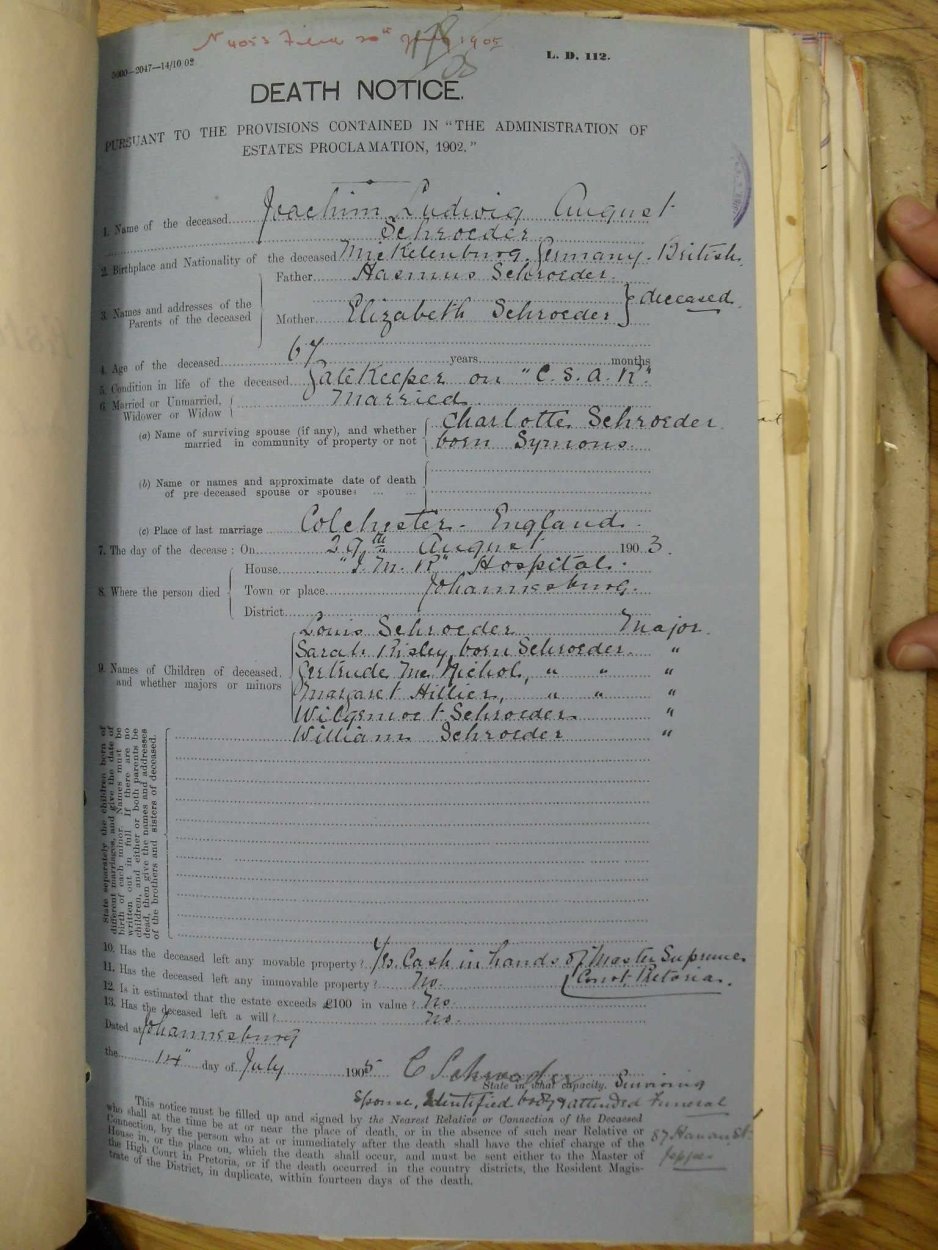 N 4053 Filed 20th July 1905
5000—2047—14/10 02
L. D. 112.
DEATH NOTICE.
PURSUANT TO THE PROVISIONS CONTAINED IN "THE ADMINISTRATION OF
ESTATES PROCLAMATION, 1902."
1. Name of the deceased Joachim Ludwig August
Schroeder
2. Birthplace and Nationality of the deceased Mecklenburg, Germany. British.
3. Names and addresses of the Parents of the deceased
Father Hasmus Schroeder
Mother Elizabeth Schroeder } deceased
4. Age of the deceased 67 years months
5. Condition in life of the deceased Gatekeeper on "C.S.A.R".
6. Married or Unmarried, Widower or Widow Married
(a) Name of surviving spouse (if any), and whether married in community of property or not
Charlotte Schroeder
born Symons.
(b) Name or names and approximate date of death
of pre deceased spouse or spouses ... ...
(c) Place of last marriage Colchester - England.
7. The day of the decease : On 29th August 1903.
8. Where the person died
House "I.M.R" Hospital.
Town or place Johannesburg.
District
9. Names of Children of deceased, and whether majors or minors
Louis Schroeder Major.
Sarah Risley, born Schroeder "
Gertrude McNichol, " " "
Margaret Hillier, " " "
Schroeder "
William Schroeder "
State separately the children born of
different marriages, and give the date of
birth of each minor. Names must be
written out in full. If there are no
children, and either or both parents be
dead, then give the names and addresses
of the brothers and sisters of deceased.
10. Has the deceased left any movable property? Yes. Cash in hands of Master Supreme
Court Pretoria.
11. Has the deceased left any immovable property? No.
12. Is it estimated that the estate exceeds £100 in value? No
13. Has the deceased left a will? No.
Dated at Johannesburg
the 14" day of July 1905 C Schroeder
State in what capacity. Surviving
Spouse, Identified body & attended Funeral
This notice must be filled up and signed by the Nearest Relative or Connection of the Deceased
who shall at the time be at or near the place of death, or in the absence of such near Relative or
Connection, by the person who at or immediately after the death shall have the chief charge of the
House in, or the place on, which the death shall occur, and must be sent either to the Master of
the High Court in Pretoria, or if the death occurred in the country districts, the Resident Magis-
trate of the District, in duplicate, within fourteen days of the death.
87 Hanan St
Jeppes